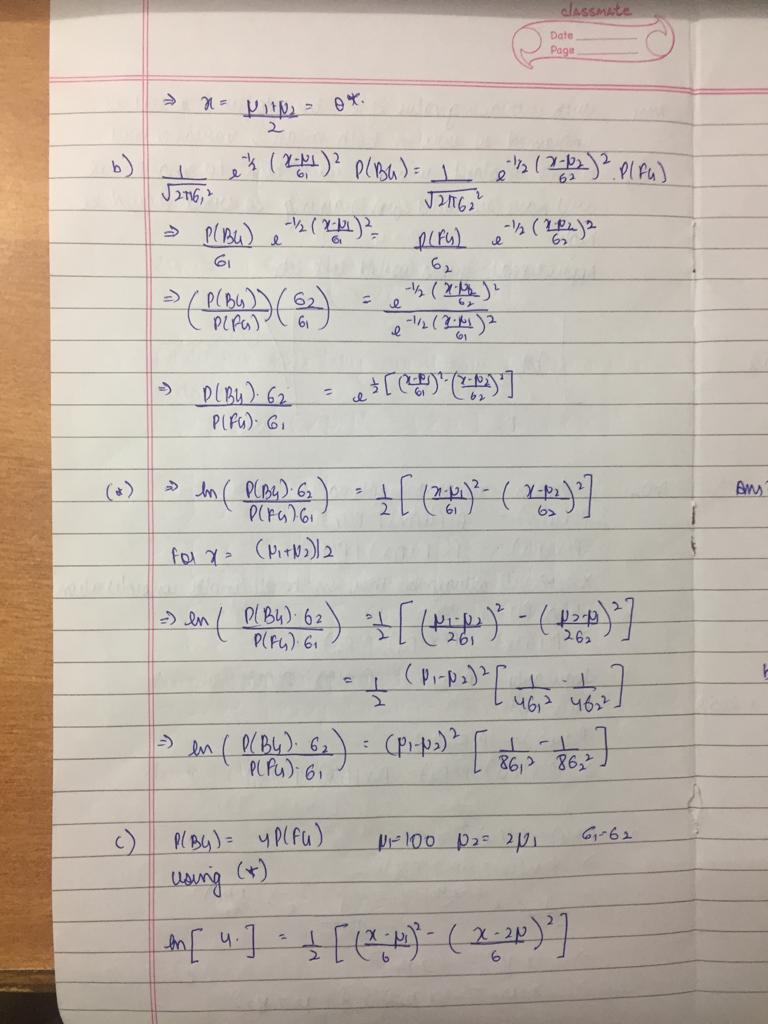 classmate
Date
Page
⇒ x = μ1+μ2 / 2 = θ*.
b) 1/√2πσ1² e^-1/2 (x-μ1/σ1)² P(BG) = 1/√2πσ2² e^-1/2 (x-μ2/σ2)² . P(FG)
⇒ P(BG)/σ1 e^-1/2 (x-μ1/σ1)² = P(FG)/σ2 e^-1/2 (x-μ2/σ2)²
⇒ (P(BG)/P(FG)) (σ2/σ1) = e^-1/2 (x-μ2/σ2)² / e^-1/2 (x-μ1/σ1)²
⇒ P(BG)·σ2 / P(FG)·σ1 = e^1/2 [(x-μ1/σ1)² - (x-μ2/σ2)²]
(*) ⇒ ln ( P(BG)·σ2 / P(FG)·σ1 ) = 1/2 [ (x-μ1/σ1)² - ( x-μ2/σ2 )² ]
Ans
for x = (μ1+μ2)/2
⇒ ln ( P(BG)·σ2 / P(FG)·σ1 ) = 1/2 [ (μ1-μ2/2σ1)² - ( μ2-μ1/2σ2 )² ]
= 1/2 (μ1-μ2)² [ 1/4σ1² - 1/4σ2² ]
⇒ ln ( P(BG)·σ2 / P(FG)·σ1 ) = (μ1-μ2)² [ 1/8σ1² - 1/8σ2² ]
c) P(BG) = 4P(FG) μ1=100 μ2= 2μ1 σ1=σ2
using (*)
ln [ 4. ] = 1/2 [ (x-μ1/σ)² - ( x-2μ/σ )² ]